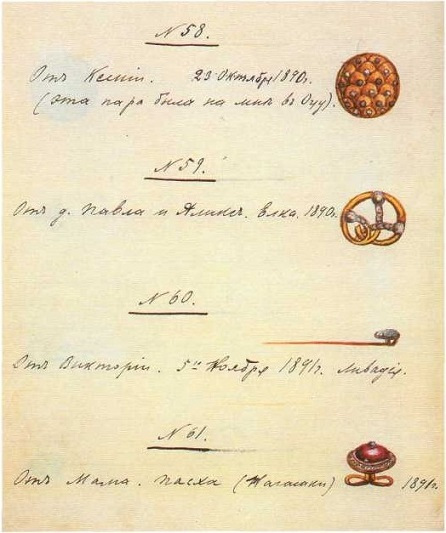 N 58.
Отъ Ксеніи. 23 Октября 1890 г.
(эта пара была на мнѣ въ Оцу).
N 59.
Отъ д. Павла и Аликсъ. Елка. 1890 г.
N 60.
Отъ Викторіи. 5го Ноября 1891 г. Ливадія.
N 61.
Отъ Мама. Пасха (Нагасаки) 1891 г.